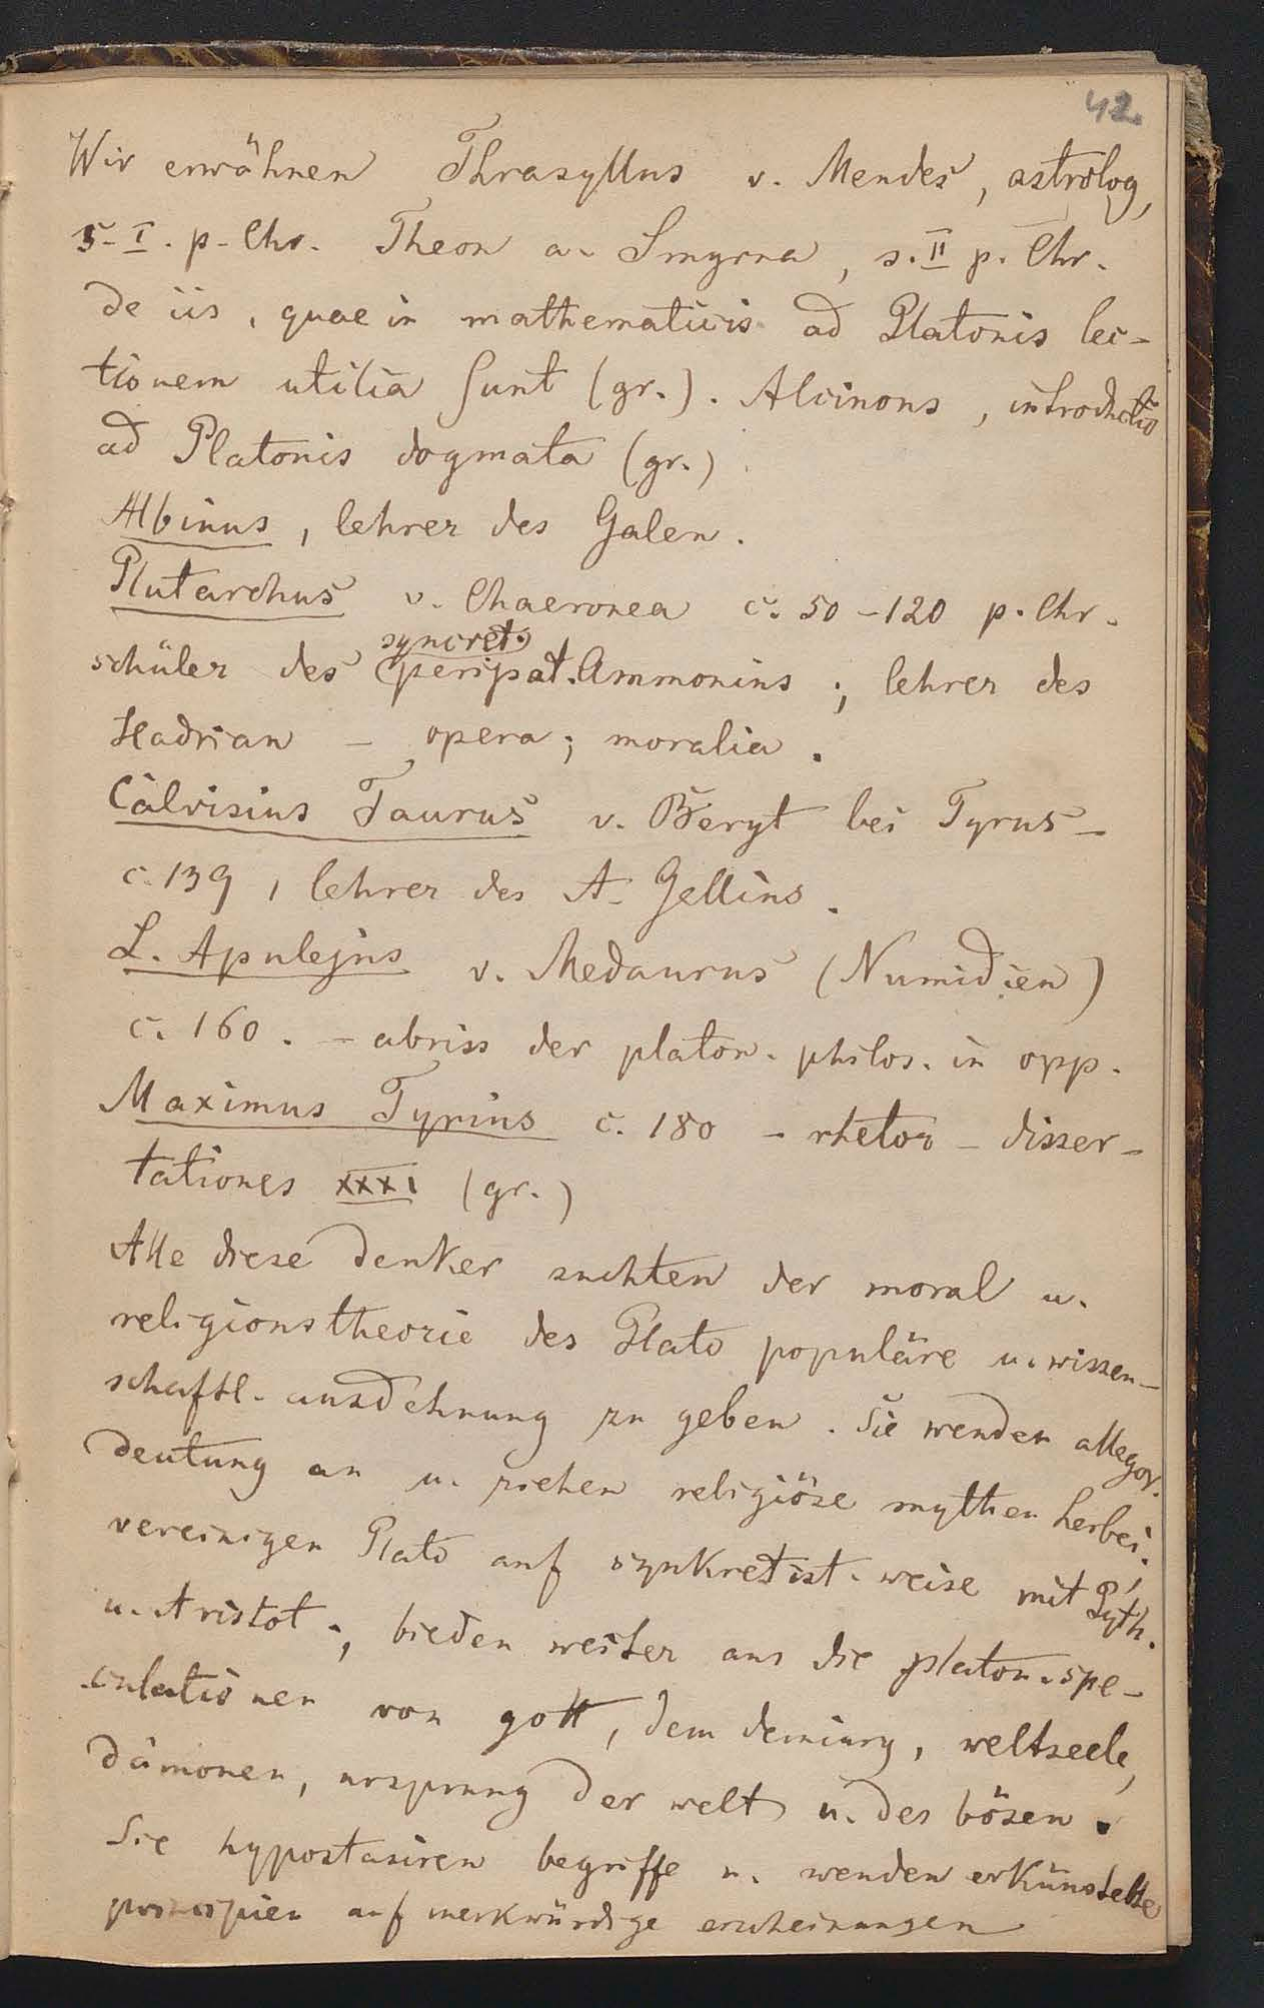 42.
Wir erwähnen Thrasyllus v. Mendes, astrolog,
s. I. p. Chr. Theon a. Smyrna, s. II p. Chr.
de iis, quae in mathematicis ad Platonis lec-
tionem utilia sunt (gr.). Alcinous, introductio
ad Platonis dogmata (gr.)
Albinus, lehrer des Galen.
Plutarchus v. Chaeronea c. 50-120 p. Chr.
syncret.
schüler des peripat. Ammonius; lehrer des
Hadrian - opera; moralia.
Calvisius Taurus v. Beryt bei Tyrus -
c. 139, lehrer des A. Gellius.
L. Apulejus v. Medaurus (Numidien)
c. 160. - abriss der platon. philos. in opp.
Maximus Tyrius c. 180 - rhetor - disser-
tationes XXXI (gr.)
Alle diese denker suchten der moral u.
religionstheorie des Plato populäre u. wissen-
schaftl. ausdehnung zu geben. Sie wenden allegor.
deutung an u. ziehen religiöse mythen herbei;
vereinigen Plato auf synkretist. weise mit Pyth.
u. Aristot., bieden weiter aus die platon. spe-
culationen von gott, dem demiurg, weltseele,
dämonen, ursprung der welt u. des bösen.
Sie hypostasiren begriffe u. wenden erkünstelte
principien auf merkwürdige erscheinungen